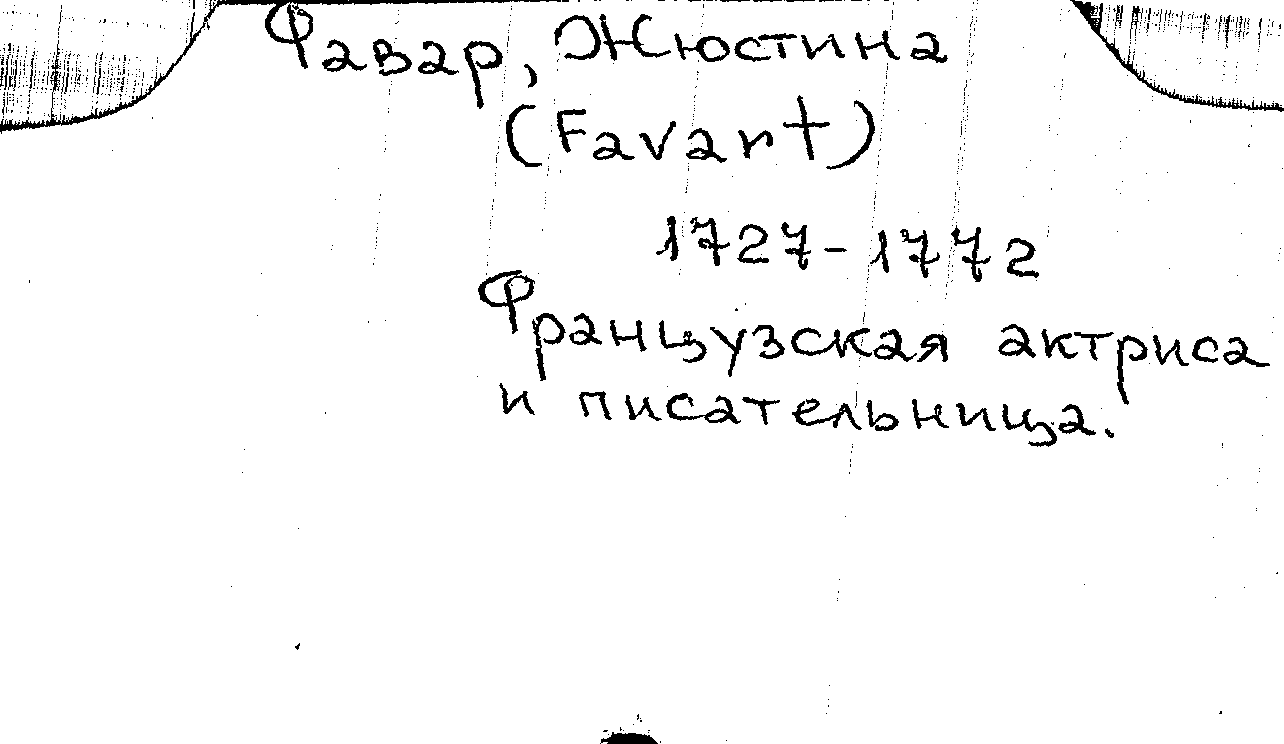 Фавар, Жюстина
(Favart)
1727-1772
Французская актриса
и писательница.